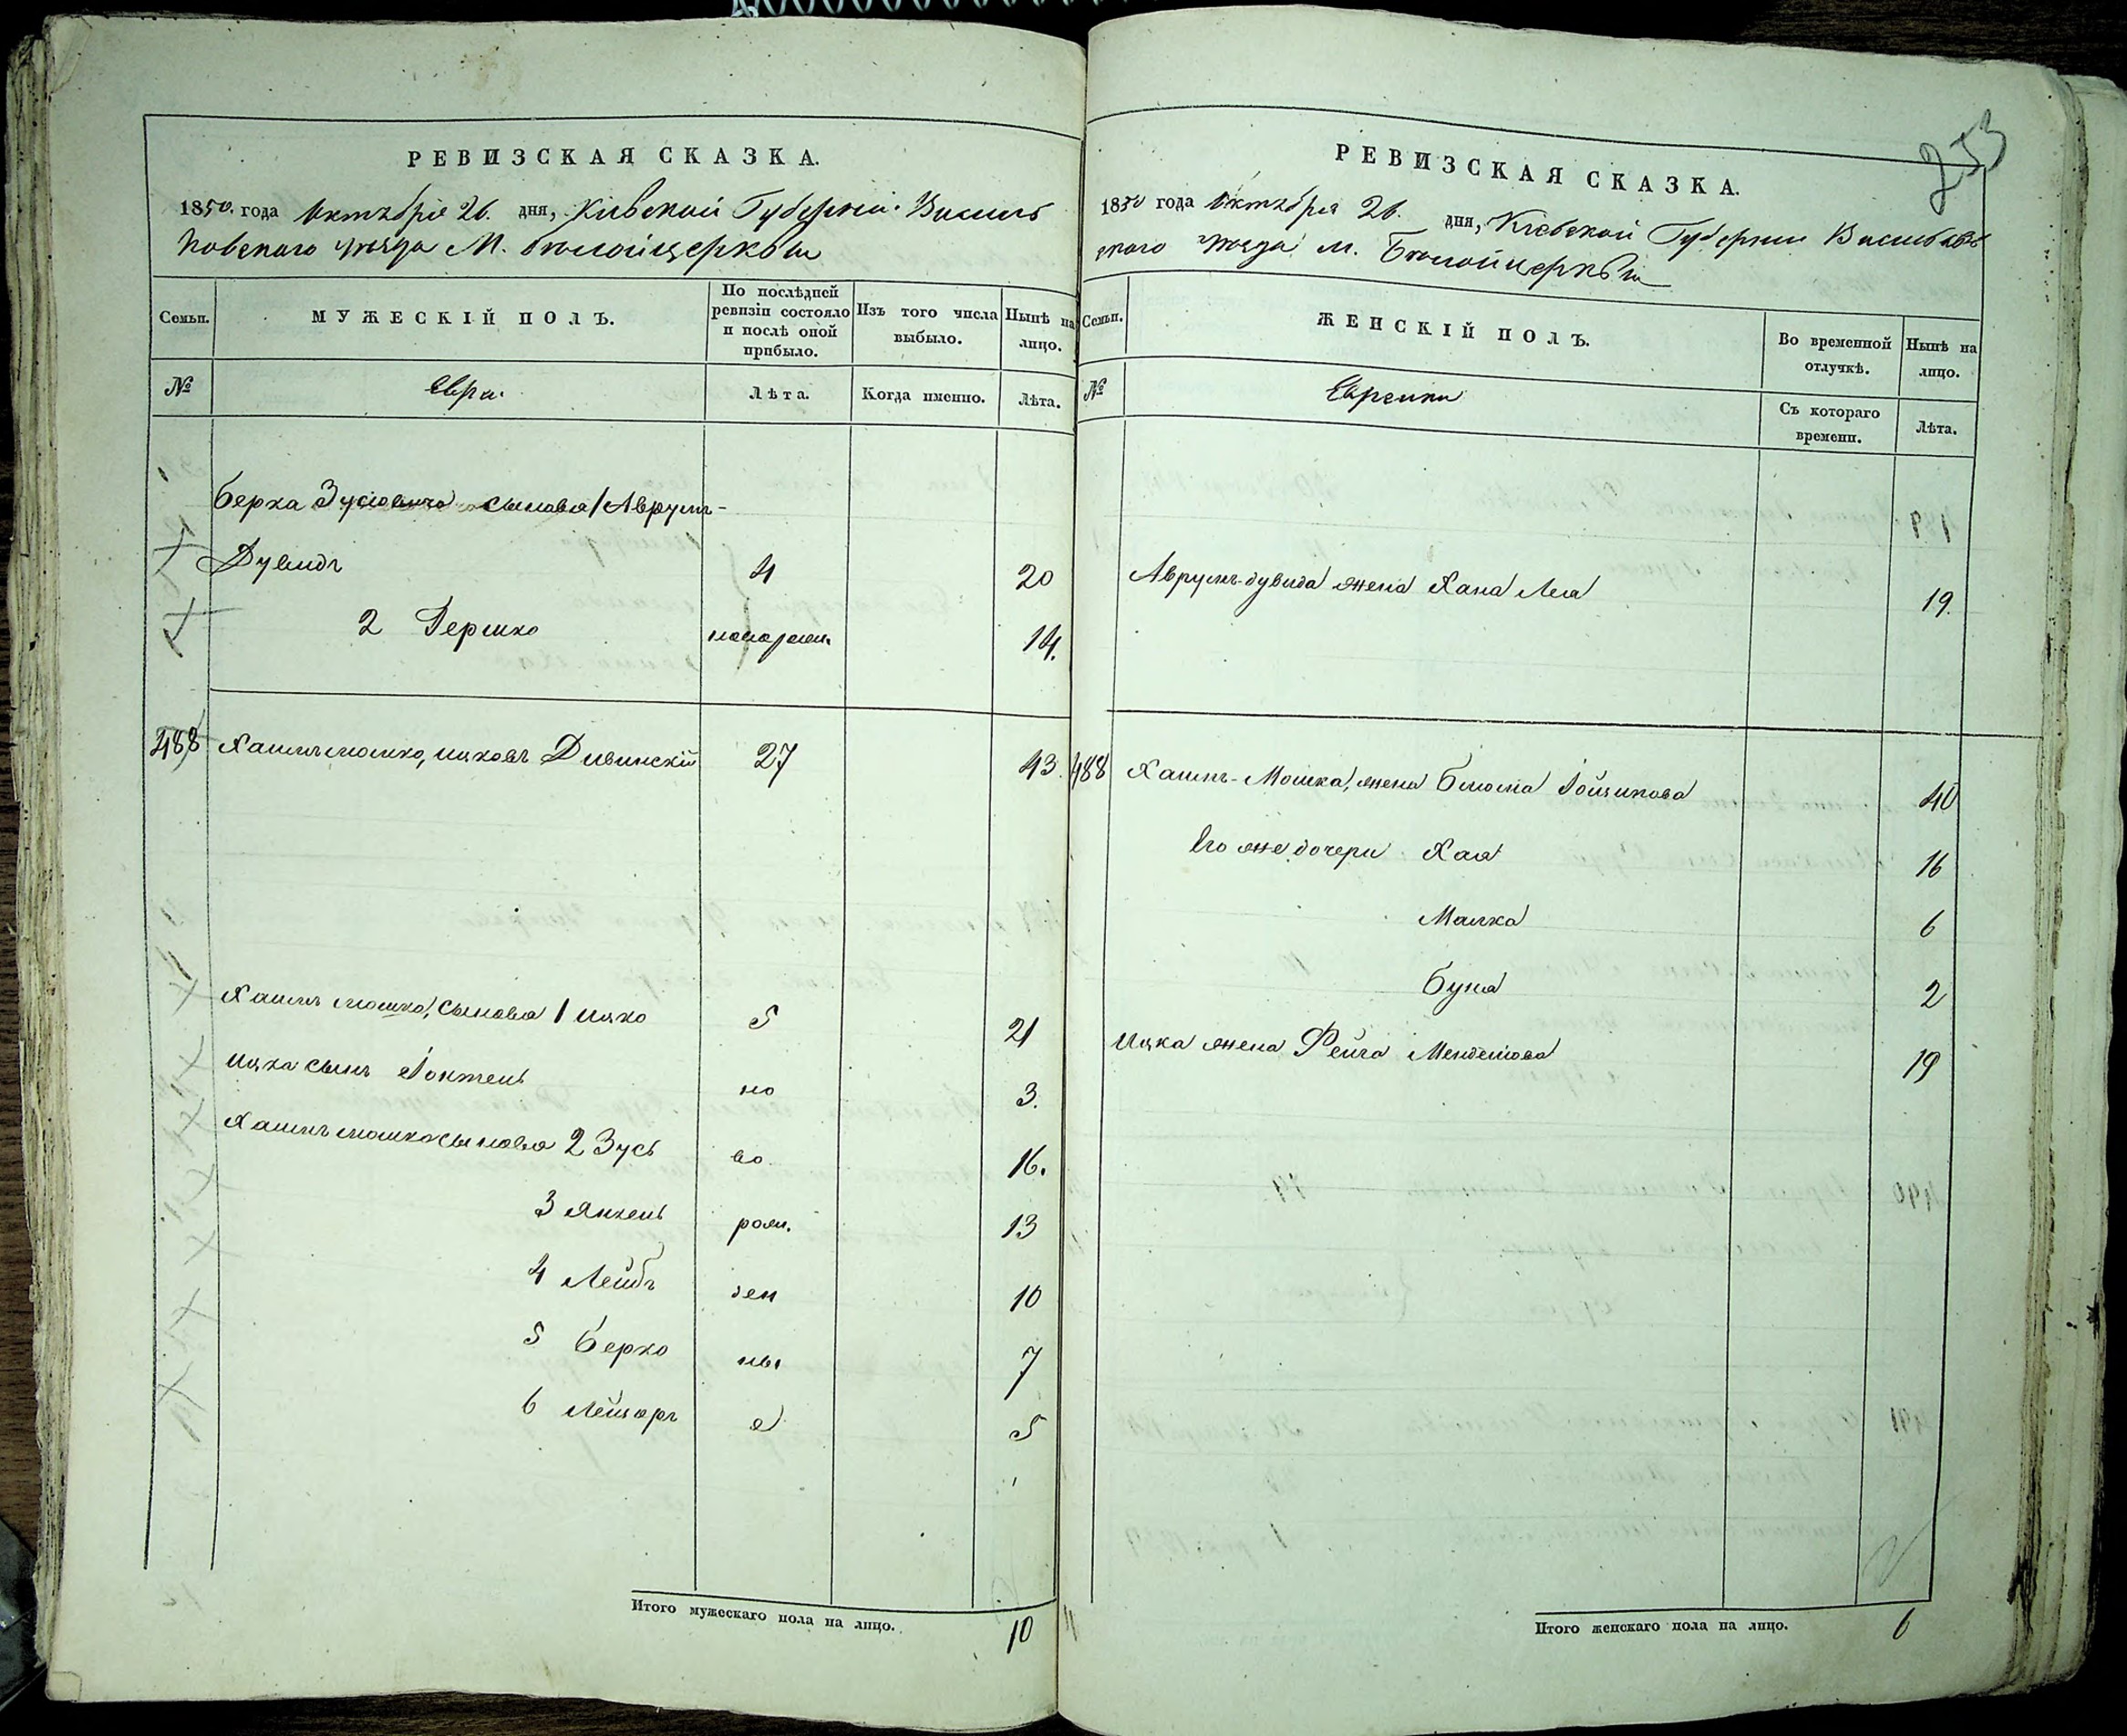 253
РЕВИЗСКАЯ СКАЗКА.
1850. года Октября 26. дня, Киевской Губернии Василь
ковского уезда М. Белойцеркви
Семьи. МУЖЕСКІЙ ПОЛЪ. По послѣдней ревизіи состояло и послѣ оной прибыло. Изъ того числа выбыло. Нынѣ на лицо.
№ Евреи. Лѣта. Когда именно. Лѣта.
Берка Зусовича сыновья 1 Аврумъ-
Дувидъ 4 20
2 Гершко новорожд. 14.
488 Хаимъ мошко, ицковъ Дивинскій 27 43.
Хаимъ мошка, сыновья 1 ицко 5 21
ицка сынъ но 3.
Хаимъ мошка сыновья 2 Зусь во 16.
3 Янкель рож. 13
4 Лейбъ ден 10
5 Берко ны 7
6 Лейзоръ е 5
Итого мужескаго пола на лицо. 10
РЕВИЗСКАЯ СКАЗКА.
1850 года Октября 26. дня, Киевской Губернии Васильков
ского уезда м. Белойцеркви
Семьи. ЖЕНСКІЙ ПОЛЪ. Во временной отлучкѣ. Нынѣ на лицо.
№ Еврейки Съ котораго времени. Лѣта.
Аврумъ-дувида жена Хана Лея 19.
488 Хаимъ-Мошка, жена Блюма 40
Его же дочери Хая 16
Малка 6
Буня 2
Ицка жена Фейга Менделева 19
Итого женскаго пола на лицо. 6